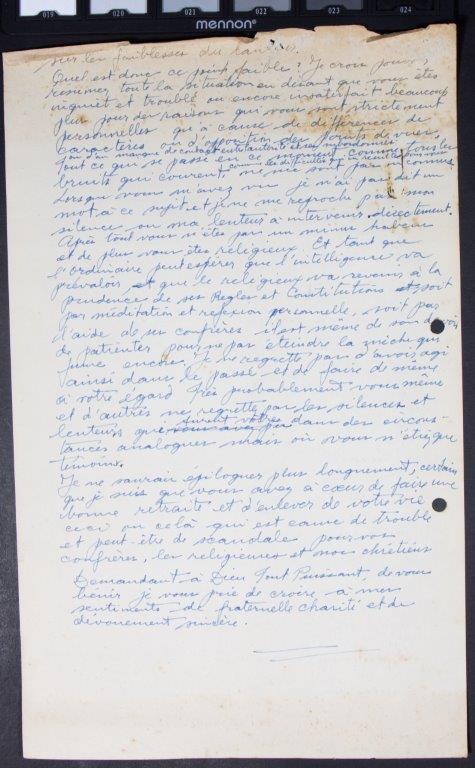 019 020 021 022 023 024
mennon
sur les faiblesses du
Quel est donc ce point faible? Je crois pouvoir
résumer toute la situation en disant que vous êtes
inquiet et troublé ou encore insatisfait beaucoup
plus pour des raisons qui vous sont strictement
personnelles qu'à cause de différences de
caractères ou d'opposition des points de vues,
ou d'un manque de contact entre autorité et subordonnés.
Tout ce qui se passe en ce moment comme tous les
bruits qui courent comme les difficultés qui en résultent pour vous
ne me sont pas inconnus.
Lorsque vous m'avez vu je n'ai pas dit un
mot à ce sujet et je ne me reproche pas mon
silence ou ma lenteur à intervenir directement.
Après tout vous n'êtes pas un minus habens
et de plus vous êtes religieux. Et tant que
l'ordinaire peut espérer que l'intelligence va
prévaloir et que le religieux va revenir à la
prudence de ses Règles et Constitutions et soit
par méditation et réflexion personnelle, soit par
l'aide de ses confrères il est même de son devoir
de patienter pour ne pas éteindre la mèche qui
fume encore. Je ne regrette pas d'avoir agi
ainsi dans le passé et de faire de même
à votre égard. Très probablement vous même
et d'autres ne regrette pas les silences et
lenteurs que dans des circons-
tances analogues mais où vous n'étiez que
témoins.
Je ne saurais épiloguer plus longuement, certain
que je suis que vous avez à cœur de faire une
bonne retraite et d'enlever de votre vie
ceci ou celà qui est cause de trouble
et peut-être de scandale pour vos
confrères, les religieuses et nos chrétiens
Demandant à Dieu Tout Puissant, de vous
bénir je vous prie de croire à mes
sentiments de fraternelle charité et de
dévouement sincère.